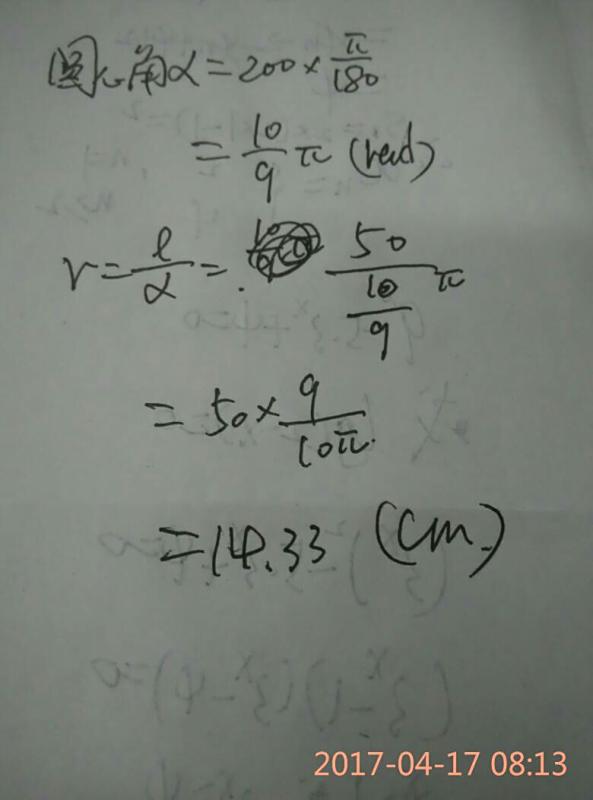 圆心角α=200×π/180
=10/9 π (rad)
r=l/α= 50/(10/9)π
=50×9/10π
=14.33 (cm)
2017-04-17 08:13